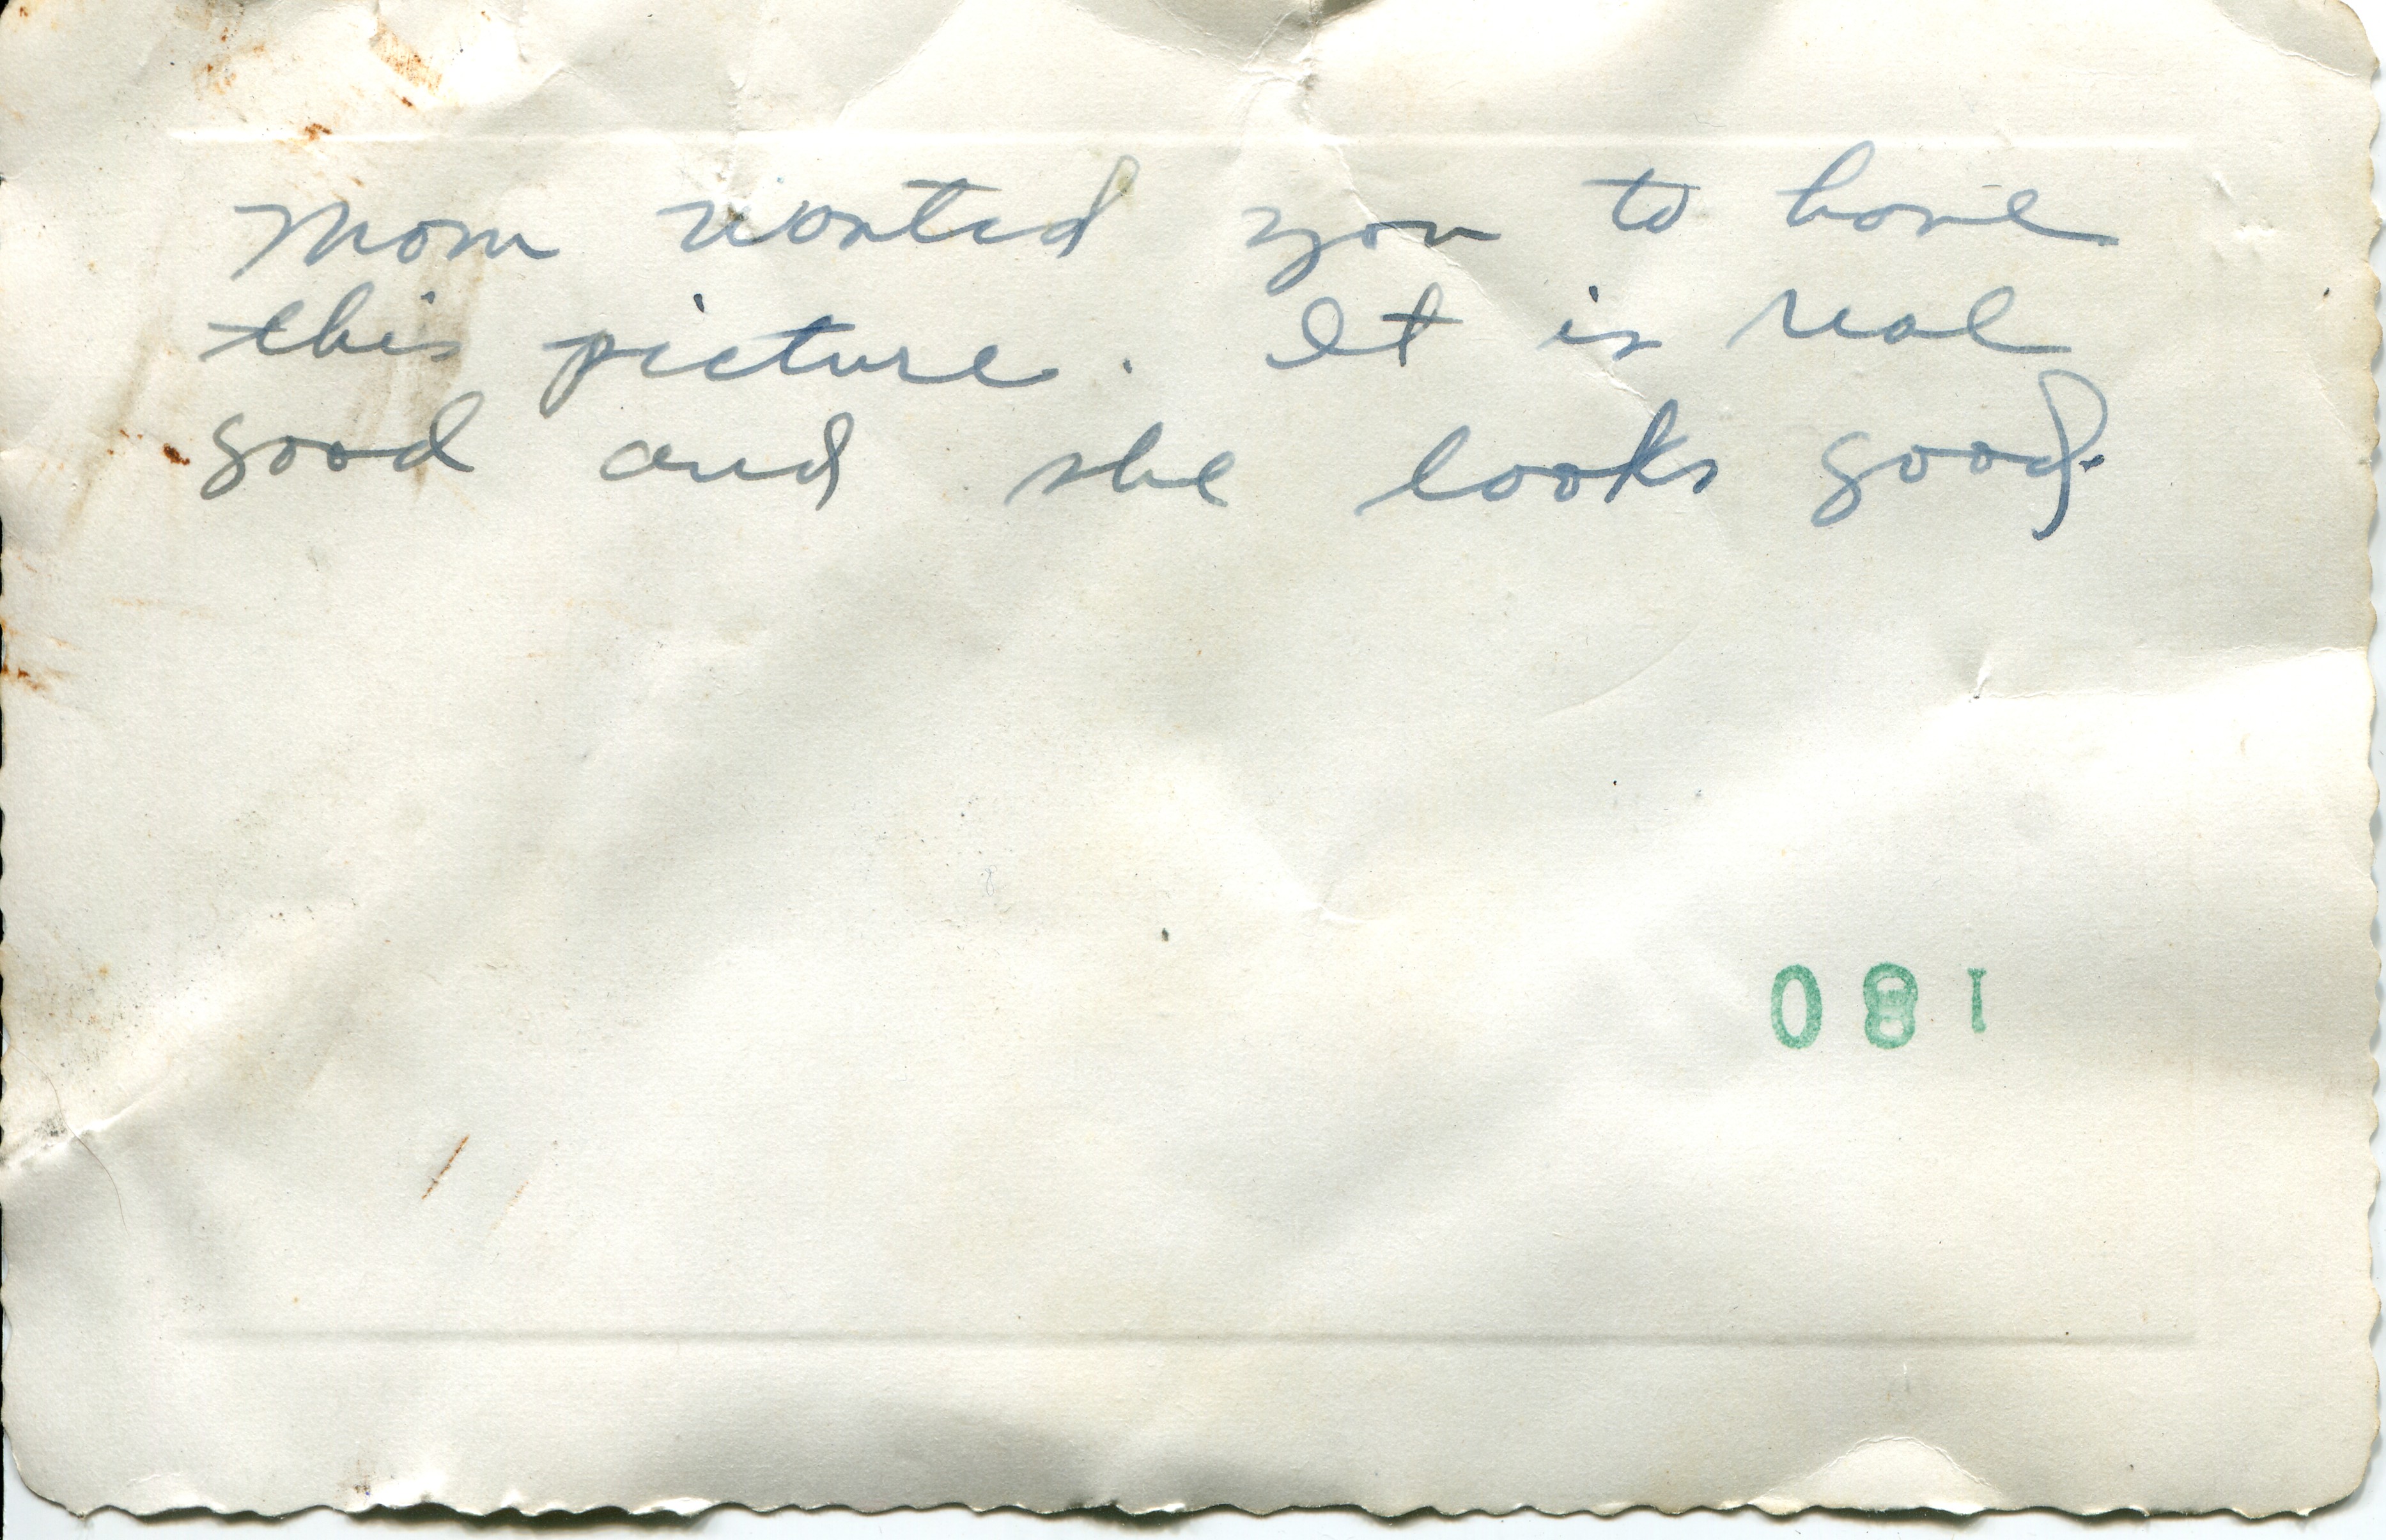 Mom wanted you to have
this picture. It is real
good and she looks good.
081